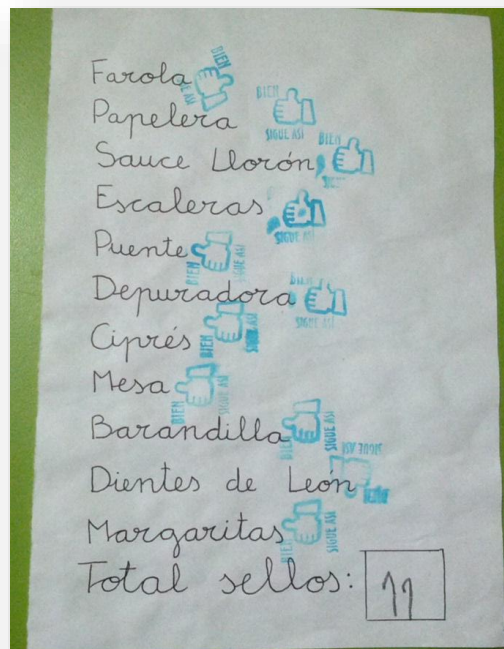 Farola BIEN SIGUE ASÍ
Papelera BIEN SIGUE ASÍ
Sauce Llorón BIEN
Escaleras SIGUE ASÍ
Puente BIEN SIGUE ASÍ
Depuradora BIEN SIGUE ASÍ
Ciprés BIEN SIGUE ASÍ
Mesa BIEN SIGUE ASÍ
Barandilla BIEN SIGUE ASÍ
Dientes de León SIGUE ASÍ
Margaritas BIEN SIGUE ASÍ
Total sellos: 11